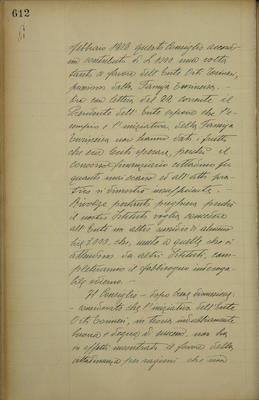 612
febbraio 1918 questo Consiglio accordò
un contributo di L. 1000 una volta
tanto a favore dell'Ente Orti
promosso dalla
Ora con lettera del 22 corrente il
Presidente dell'Ente espone che l'e-
sempio e l'iniziativa della
non hanno dato i frutti
che esso Ente sperava, perché il
concorso finanziario cittadino fu
quanto mai scarso ed all'atto pra-
tico si dimostrò insufficiente. -
Rivolge pertanto preghiera perché
il nostro Istituto voglia concedere
all'Ente un altro sussidio di almeno
L. 2000. che, unito a quello che si
attendono da altri Istituti, com-
pleterebbero il fabbisogno
Il Consiglio - dopo breve discussione;
- considerato che l'iniziativa dell'Ente
Orti se indubbiamente
buona e degna di non ha
in effetti incontrato il favore della
cittadinanza per ragioni che